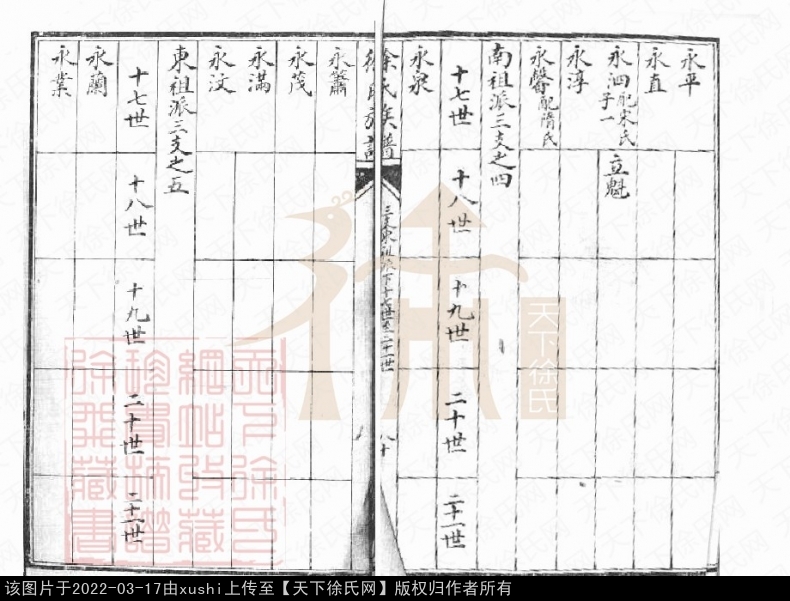 永平
永直
永泗 配宋氏 子一 立魁
永淳
永馨 配隋氏
南祖派三支之四
十七世 十八世 十九世 二十世 二十一世
永泉
徐氏族譜
八十
永茂
永滿
永汶
東祖派三支之五
十七世 十八世 十九世 二十世 二十一世
永蘭
永業
天下徐氏
该图片于2022-03-17由xushi上传至【天下徐氏网】版权归作者所有